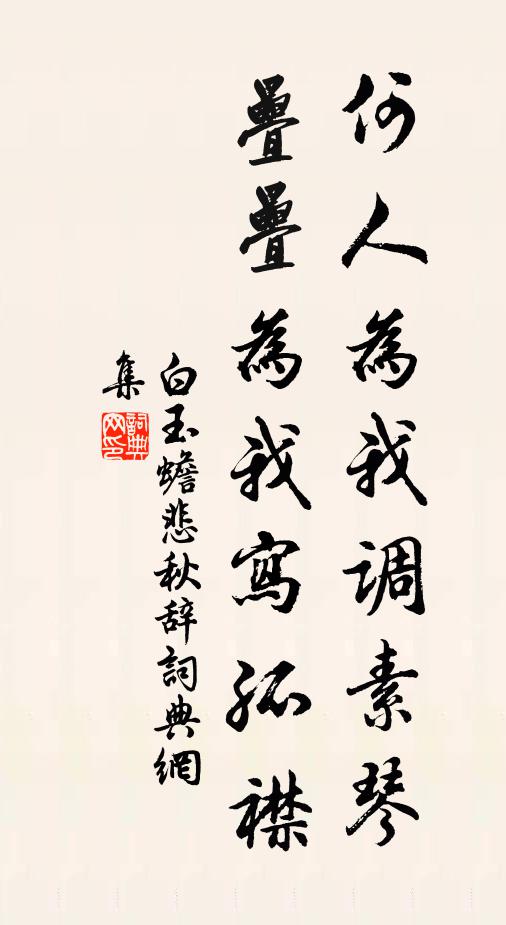 何人為我调素琴
疊疊為我寫孤襟
白玉蟾悲秋辞詞典網
集
詞典網印